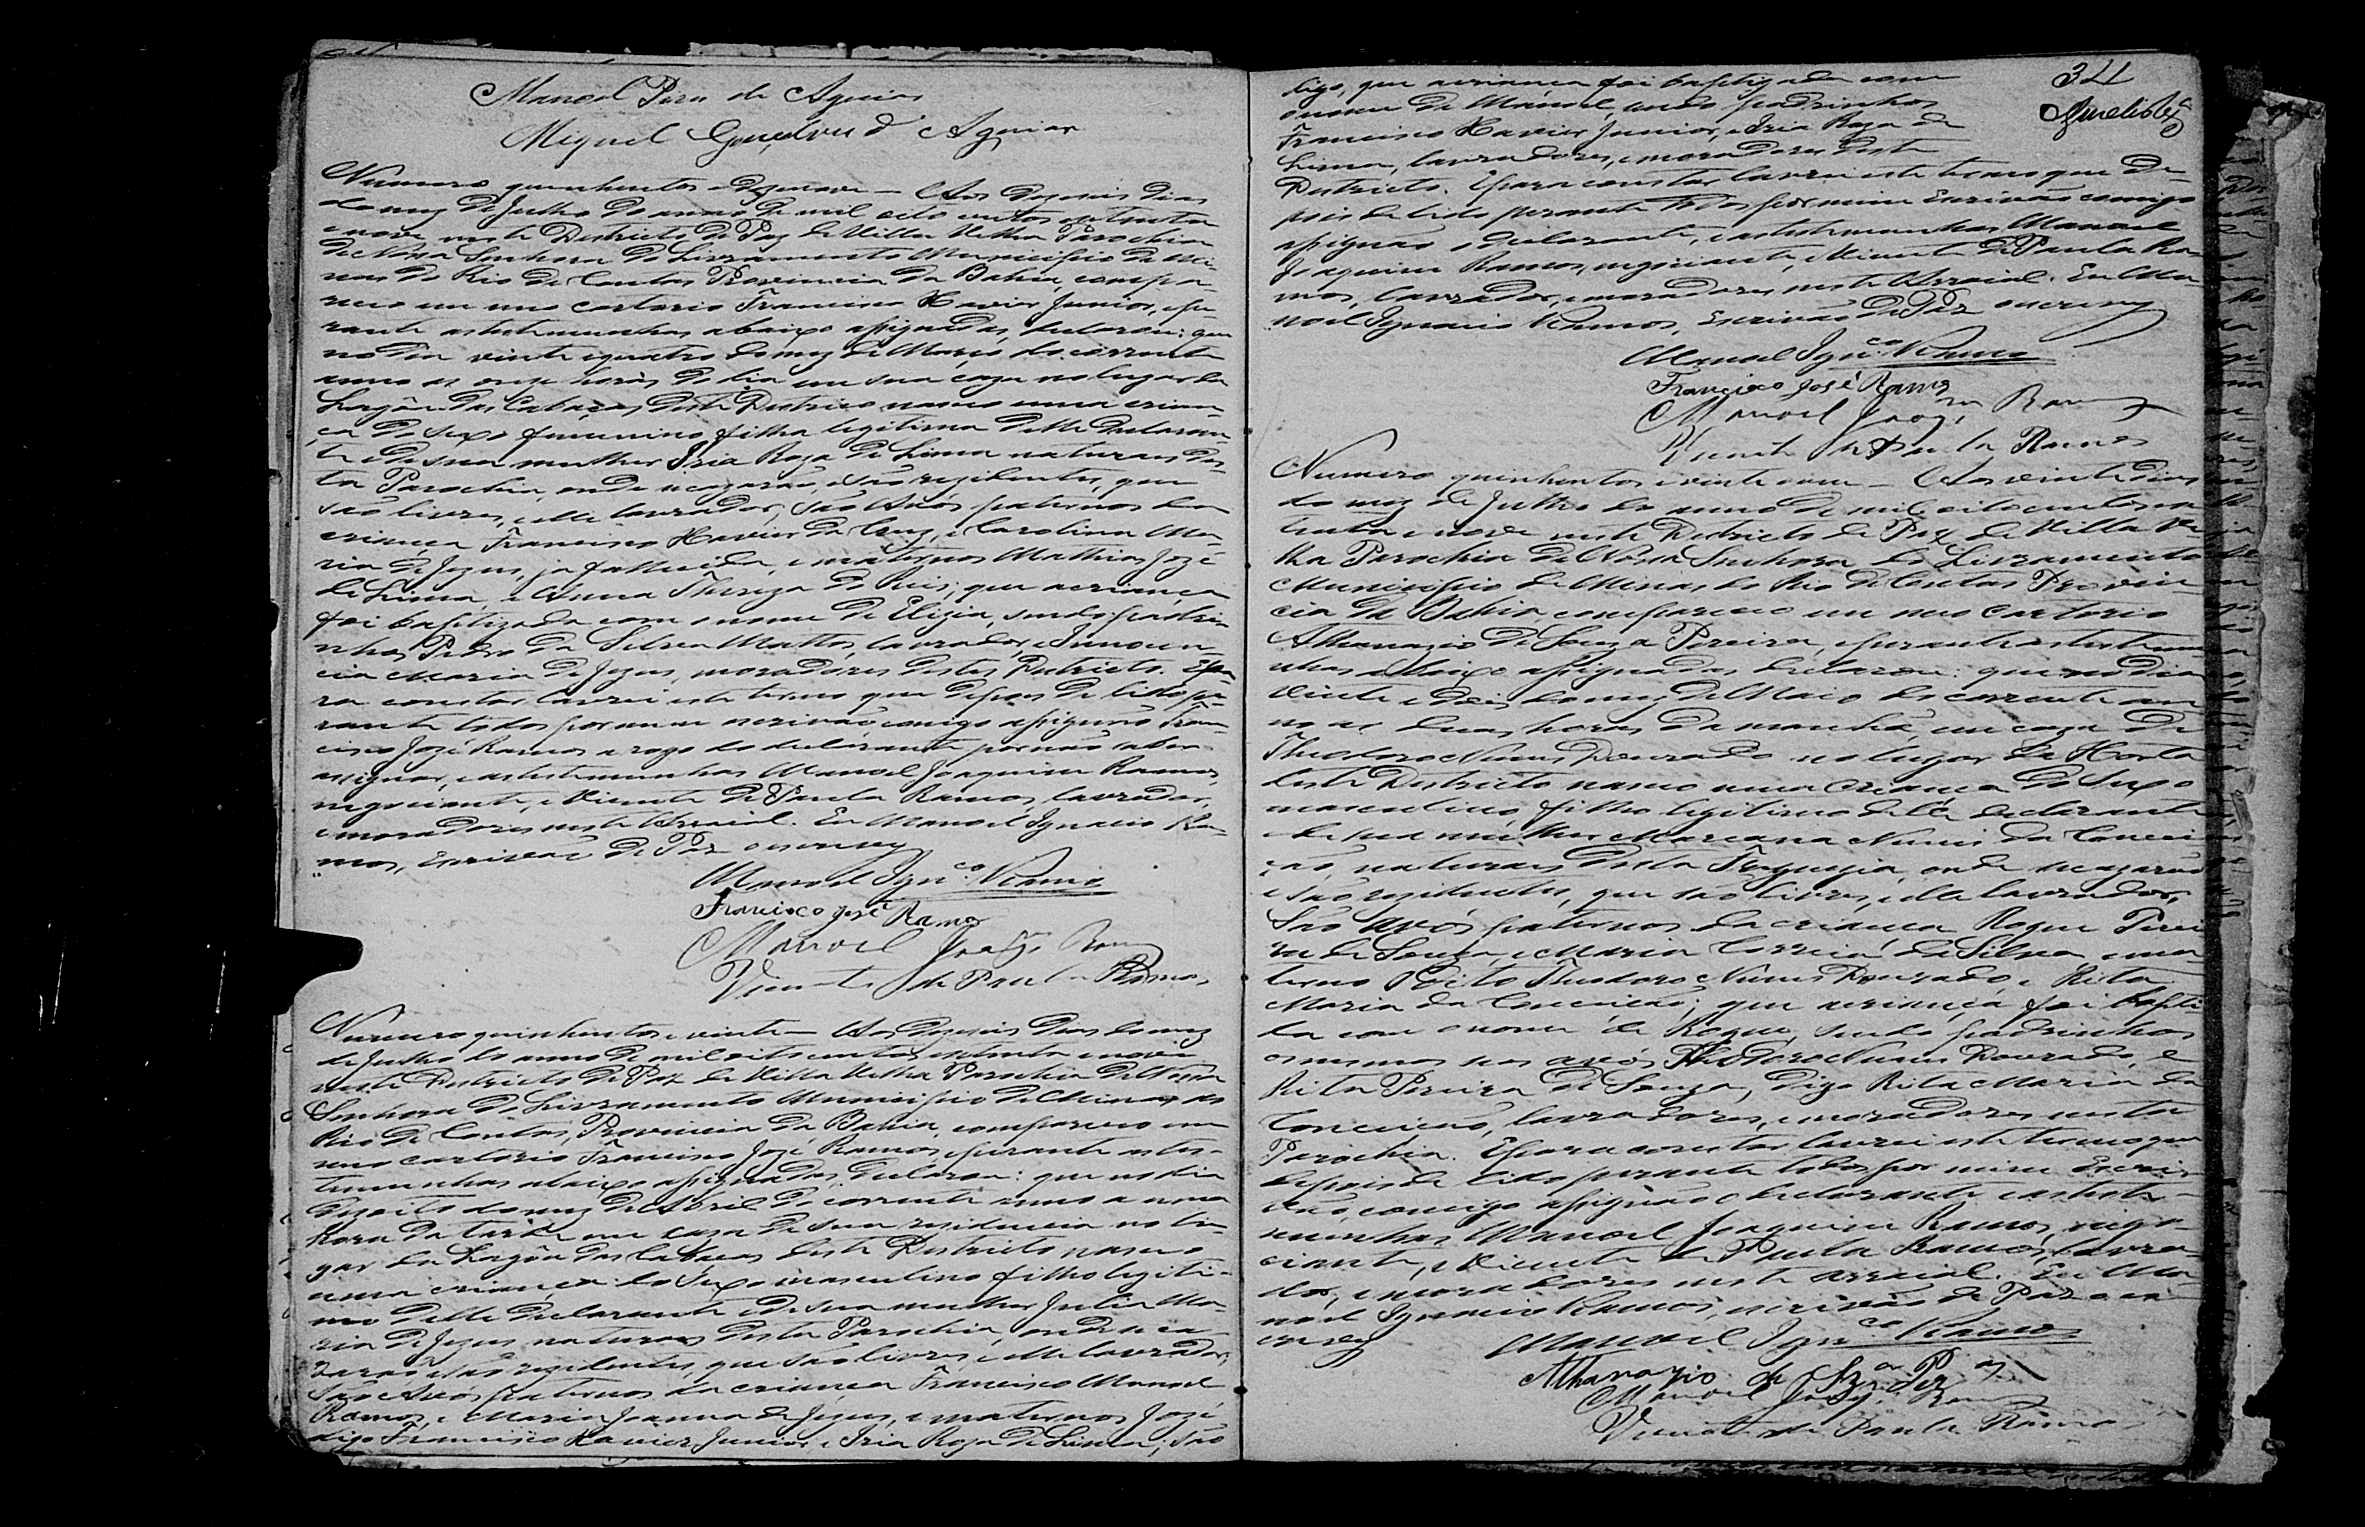 Manoel Pires de Aguiar
Miguel Gonçalves d' Aguiar
Numero quinhentos e dezenove — Aos dezeseis dias
do mez de Julho do anno de mil oito centos e oitenta
e nove neste Districto de Paz de Villa Velha Parochia
de Nossa Senhora do Livramento Municipio de Mi-
nas do Rio de Contas Provincia da Bahia, compa-
receu em meo cartorio Francisco Xavier Junior, e pe-
rante as testemunhas abaixo assignadas, declarou: que
no dia vinte e quatro do mez de Março do corrente
anno as onze horas do dia em sua caza no lugar da
Lagôa das Cabaças deste Districto nasceo uma crian-
ça do sexo femenino filha legitima delle declaran-
te e de sua mulher Iria Roza de Lima naturaes des-
ta Parochia, onde se cazarão, e são rezidentes, que
são livres, e elle lavrador, são Avós paternos da
criança Francisco Xavier da Cruz, e Carolina Ma-
ria de Jezus, ja fallecida, e maternos Mathias Jozé
de Lima, e Anna Thereza de Reis; que a criança
foi baptizada com o nome de Elizia, sendo padri-
nhos Pedro da Silva Mattos, lavrador, e Innocen-
cia Maria de Jezus, moradores destes Districto. E pa-
ra constar lavrei este termo que depois de lido pe-
rante todos por mim escrivão comigo assignão Fran-
cisco Jozé Ramos a rogo do declarante por não saber
assignar, e as testemunhas Manoel Joaquim Ramos,
negociante, e Vicente de Paula Ramos, lavrador,
e moradores neste Arraial. Eu Manoel Ignacio Ra-
mos, Escrivão de Paz o escrevy
Manoel Ign.co Ramos
Francisco José Ramos
Manoel Joaq.m Ramos
Vicente de Paula Ramos
Numero quinhentos e vinte — Aos dezeseis dias do mez
de Julho do anno de mil oito centos e oitenta e nove
neste Districto de Paz de Villa Velha Parochia de Nossa
Senhora do Livramento Municipio de Minas do
Rio de Contas, Provincia da Bahia, compareceo em
meo cartorio Francisco Jozé Ramos, e perante as tes-
temunhas abaixo assignadas, declarou: que no dia
dezoito do mez de Abril do corrente anno a uma
hora da tarde em caza de sua residencia no lu-
gar da Lagôa das Cabaças deste Districto nasceo
uma criança do sexo masculino filho legiti-
mo delle declarante e de sua mulher Julia Ma-
ria de Jezus naturaes desta Parochia, onde se ca-
zarão e são rezidentes, que são livres, e elle lavrador;
são Avós paternos da criança Francisco Manoel
Ramos, e Maria Joanna de Jezus, e maternos Jozé
digo Francisco Xavier Junior e Iria Roza de Lima; são
digo, que a criança foi baptizada com
o nome de Manoel, sendo padrinhos
Francisco Xavier Junior, e Iria Roza de
Lima, lavradores, e moradores deste
Districto. E para constar lavrei este termo que de-
pois de lido perante todos por mim Escrivão comigo
assignão o declarante, e as testemunhas Manoel
Joaquim Ramos, negociante, e Vicente de Paula Ra-
mos, lavrador, e moradores neste Arraial. Eu Ma-
noel Ignacio Ramos, Escrivão de Paz o escrevy
Manoel Ign.co Ramos
Francisco José Ramos
Manoel Joaq.m Ramos
Vicente de Paula Ramos
Numero quinhentos e vinte e um — Aos vinte dias
do mez de Julho do anno de mil oito centos e oi-
tenta e nove neste Districto de Paz de Villa Ve-
lha Parochia de Nossa Senhora do Livramento
Municipio de Minas do Rio de Contas Provin-
cia da Bahia, compareceo em meo cartorio
Athanazio de Souza Pereira, e perante as testemu-
nhas abaixo assignadas declarou: que no dia
vinte e dois do mez de Maio do corrente an-
no as duas horas da manhã, em caza de
Theodoro Nunes Dourado no lugar da Horta
deste Districto nasceo uma criança do sexo
masculino, filho legitimo delle declarante
e de sua mulher Marcana Nunes da Concei-
ção, naturaes desta Freguezia, onde se cazarão
e são rezidentes, que são livres, e elle lavrador,
São avós paternos da criança Roque Perei-
ra de Souza, e Maria Correia da Silva, e ma-
ternos Theodoro Nunes Dourado, e Rita
Maria da Conceição; que a criança foi bapti-
da com o nome de Roque, sendo padrinhos
os mesmos seos avós Theodoro Nunes Dourado, e
Rita Pereira de Souza, digo Rita Maria da
Conceição, lavradores, e moradores nesta
Parochia. E para constar lavrei este termo que
depois de lido perante todos por mim Escri-
vão, comigo assignão o declarante e as teste-
munhas Manoel Joaquim Ramos, nego-
ciante, e Vicente de Paula Ramos, lavra-
dor, e moradores neste Arraial. Eu Ma-
noel Ignacio Ramos, escrivão de Paz o es-
crevy
Manoel Ign.co Ramos
Athanazio de Sz.a Pr.a
Manoel Joaq.m Ramos
Vicente de Paula Ramos